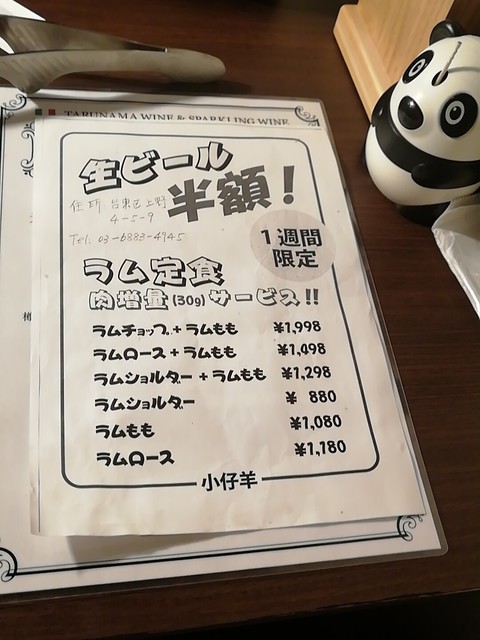 TARUNAMA WINE & SPARKLING WINE
生ビール
半額!
住所 台東区上野
4-5-9
Tel: 03-6883-4745
1週間
限定
ラム定食
肉増量(30g)サービス!!
ラムチョップ+ラムもも ¥1,998
ラムロース+ラムもも ¥1,498
ラムショルダー+ラムもも ¥1,298
ラムショルダー ¥ 880
ラムもも ¥1,080
ラムロース ¥1,180
小仔羊